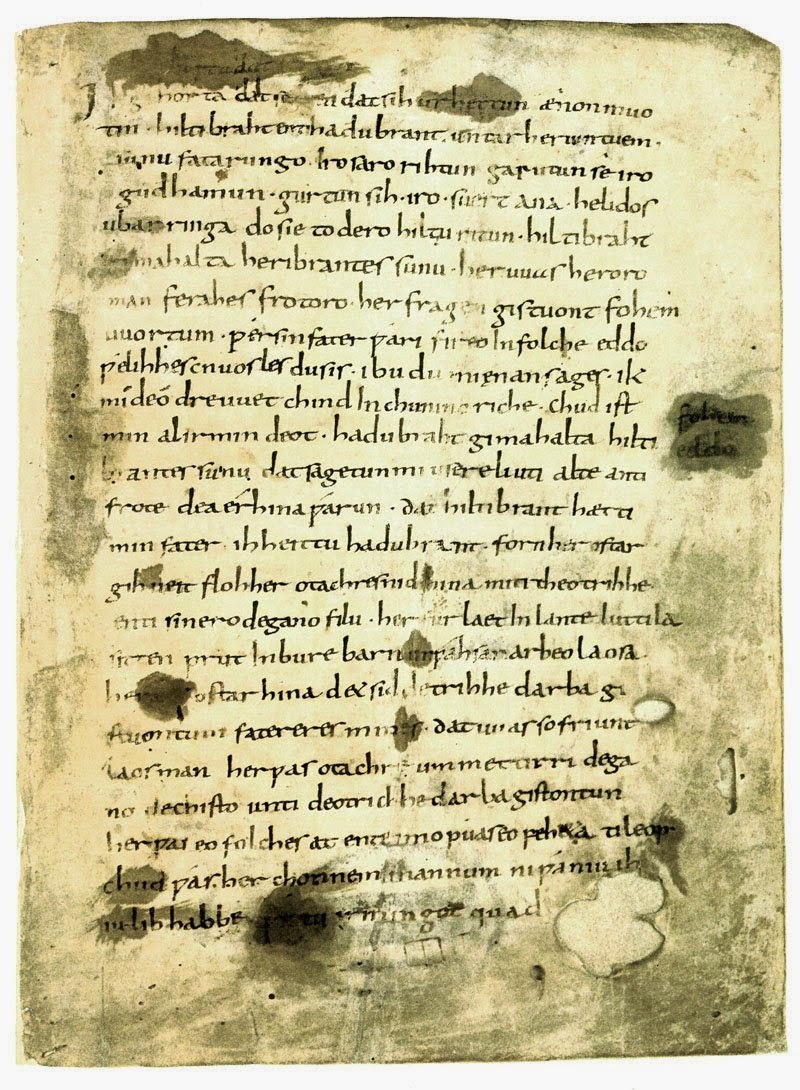 gihorta dat seggen dat sih urhettun ænon muo
tin · hiltibraht enti hadubrant untar heriun tuem ·
sunu fatarungo · iro saro rihtun garutun sê iro
gudhamun · gurtun sih · iro · suert ana · helidos
ubar ringa do sie to dero hiltu ritun · hiltibraht
gimahalta heribrantes sunu · her uuas heroro
man ferahes frotoro · her fragen gistuont fohem
uuortum · ƿer sin fater ƿari fireo In folche eddo
ƿelihhes cnuosles du sis · ibu du mi enan sages · ik
mi deo dre uuet chind In chunincriche · chud ist
min al irmin deot · hadubraht gimahalta hilti
brantes sunu dat sagetun mi usere liuti alte anti
frote dea érhina ƿarun · dat hiltibrant hætti
min fater · ih heittu hadubrant · forn her ostar
gihueit floh her otachres nid hina miti theotrihhe
enti sinero degano filu · her fur laet In lante luttila
sitten prut In bure barn unƿahsan arbeo laosa
ostar hina d& sid detrihhe darba gi
stuontum fatereres mines · dat uuas so friunt
laos man her ƿas otachre ummettirri dega
no dechisto unti deotrichhe darba gistontun
her ƿas eo folches at ente imo ƿuas eo feh&a ti leop
chud ƿas her chonnem mannum ni ƿaniu ih
iu lib habbe irmingot quad